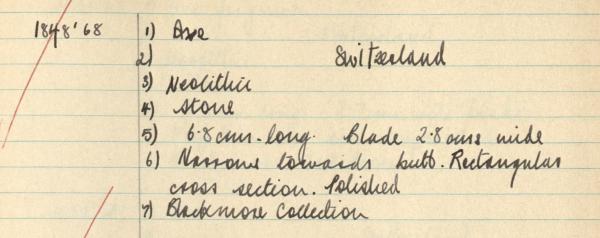 1848'68 1) Axe
2) Switzerland
3) Neolithic
4) Stone
5) 6.8 cms. long. Blade 2.8 cms wide
6) Narrows towards butt. Rectangular
cross section. Polished
7) Blackmore Collection